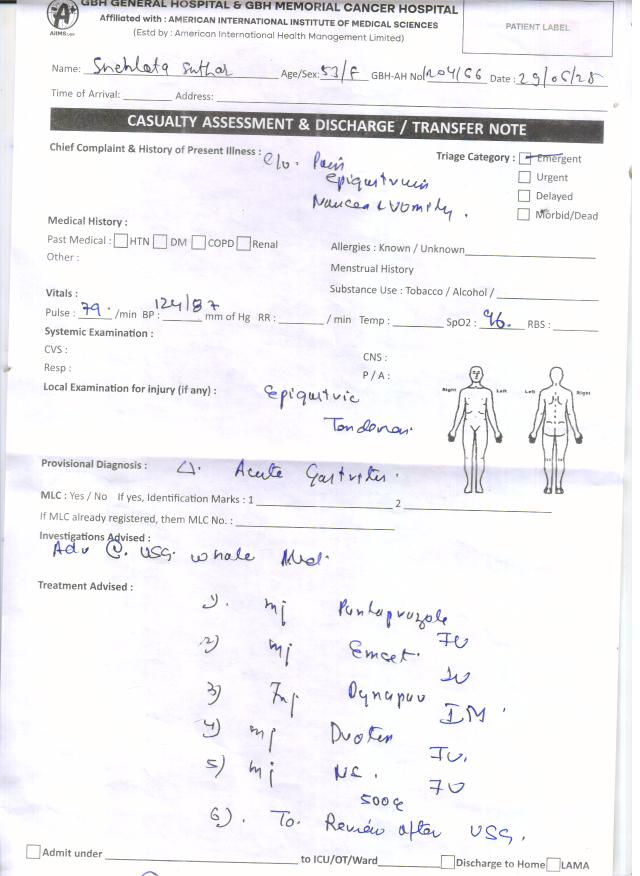 GBH GENERAL HOSPITAL & GBH MEMORIAL CANCER HOSPITAL
Affiliated with : AMERICAN INTERNATIONAL INSTITUTE OF MEDICAL SCIENCES
(Estd by : American International Health Management Limited)
PATIENT LABEL
Name: Snehlata Suthar Age/Sex: 53/F GBH-AH No Date : 29/06/25
Time of Arrival: Address:
CASUALTY ASSESSMENT & DISCHARGE / TRANSFER NOTE
Chief Complaint & History of Present Illness : c/o. Pain
Epigastrium
Nausea & Vomiting.
Triage Category : Emergent
Urgent
Delayed
Morbid/Dead
Medical History :
Past Medical : HTN DM COPD Renal
Other :
Allergies : Known / Unknown
Menstrual History
Substance Use : Tobacco / Alcohol /
Vitals :
Pulse : 79 /min BP : 124/87 mm of Hg RR : / min Temp : SpO2 : 96. RBS :
Systemic Examination :
CVS : CNS :
Resp : P / A :
Right Left Left Right
Local Examination for injury (if any) : Epigastric
Provisional Diagnosis : Acute Gastritis.
MLC : Yes / No If yes, Identification Marks : 1 2
If MLC already registered, them MLC No. :
Investigations Advised :
Adv USG. whole Abd.
Treatment Advised :
1). inj Pantaprazole
2) inj Emset.
3) Inj Dynapar IM
4) inj
5) inj NS.
6). To Review after USG.
Admit under to ICU/OT/Ward Discharge to Home LAMA